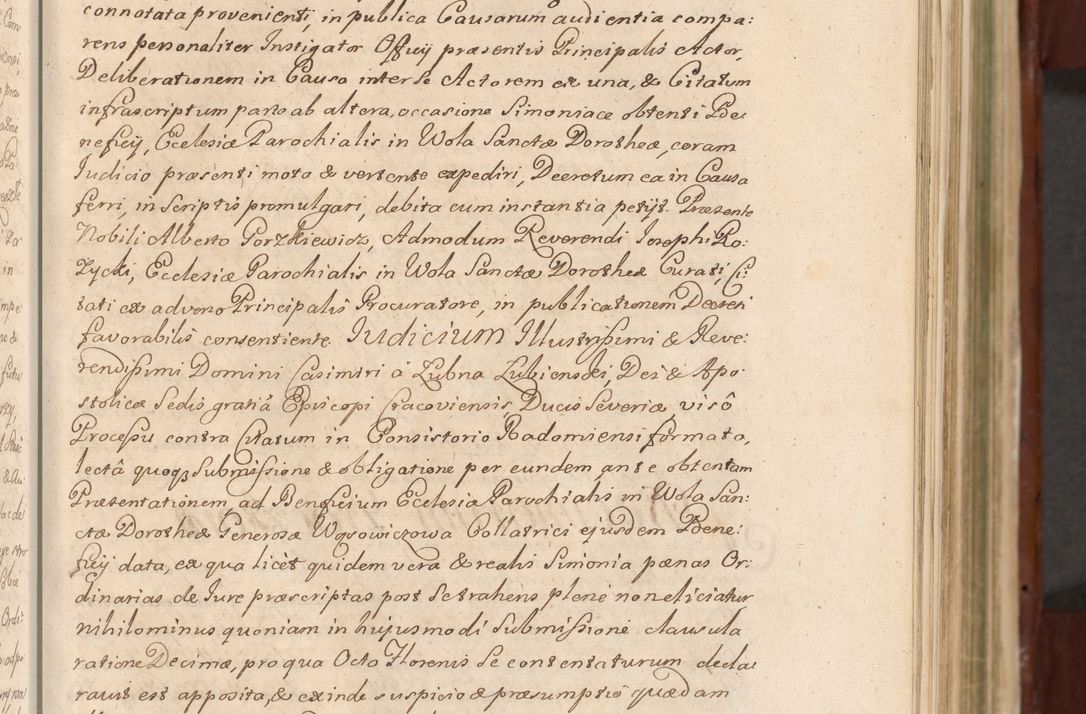 connotata provenienti, in publica Causarum audientia compa:
rens personaliter Instigator Officij præsentis Principalis Actor,
Deliberationem in Causa inter se Actorem ex una, & Citatum
infrascriptum parte ab altera, occasione Simoniace obtenti Be:
neficij, Ecclesiæ Parochialis in Wola Sanctæ Dorotheæ, coram
Iudicio præsenti mota & vertente expediri, Decretum ea in Causa
ferri, in Scriptis promulgari, debita cum instantia petijt. Præsente
Nobili Alberto Gorzkiewicz, Admodum Reverendi Iosephi Ro:
życki, Ecclesiæ Parochialis in Wola Sanctæ Dorotheæ Curati, Ci:
tati ex adverso Principalis Procuratore, in publicationem Decreti
favorabilis consentiente. Iudicium Illustrissimi & Reve:
rendissimi Domini Casimiri à Łubna Łubienski, Dei & Apo:
stolicæ Sedis gratiâ Episcopi Cracoviensis, Ducis Severiæ, visô
Processu contra Citatum in Consistorio Radomiensi formato,
lectâ quoq3 Submissione & obligatione per eundem ante obtentam
Præsentationem, ad Beneficium Ecclesiæ Parochialis in Wola San:
ctæ Dorotheæ Generosæ Wąsowiczowa Collatrici ejusdem Bene:
ficij data, ex qua licèt quidem vera & realis Simonia pænas Or:
dinarias de Iure præscriptas post se trahens plenè non eliciatur
nihilominus quoniam in hujusmodi Submissione clausula
ratione Decimæ, pro qua Octo Florenis se contentaturum decla:
ravit est apposita, & exinde suspicio & præsumptio quædam